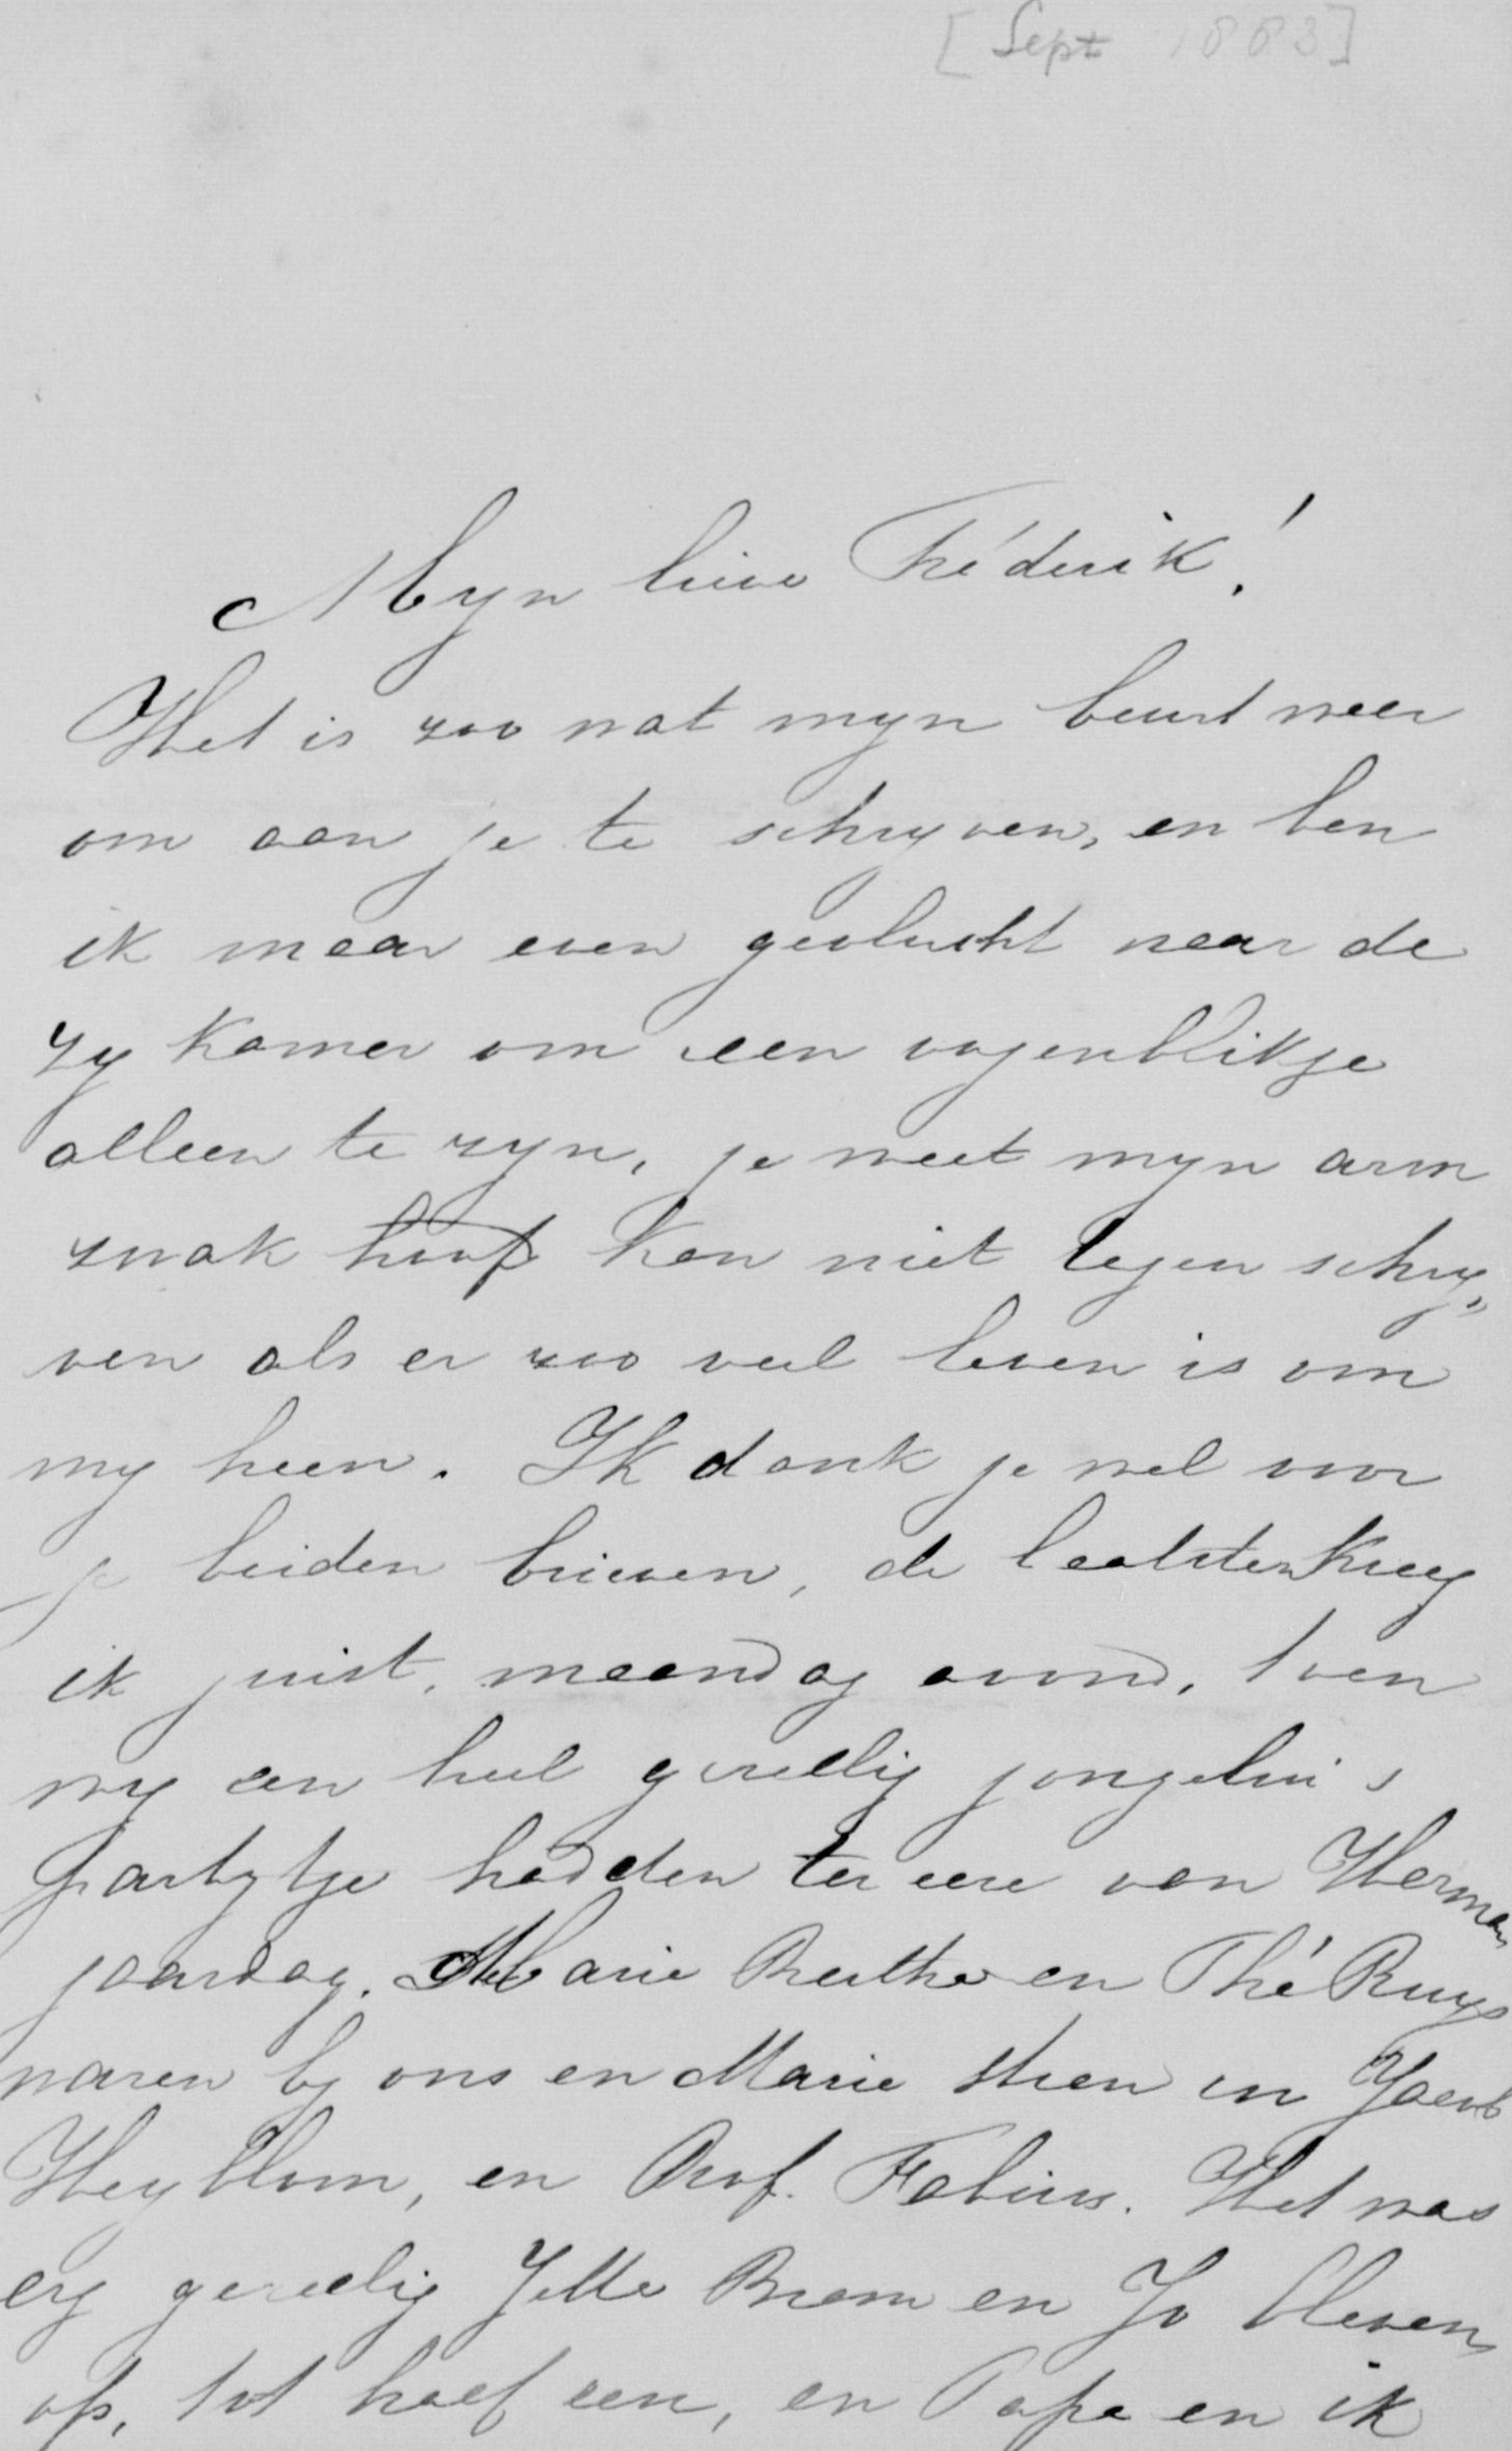 [Sept 1883]
Myn lieve Fréderik!
Het is zoo wat myn beurt weer
om aan je te schryven, en ben
ik maar even gevlucht naar de
zy kamer om een oogenblikje
alleen te zyn, je weet myn arm
zwak hoof kan niet tegen schry„
ven als er zoo veel leven is om
my heen. Ik dank je wel voor
je beiden brieven, de laatsten kreeg
ik juist, maandag avond, toen
wy een heel gezellig jongelui s
partytje hadden ter eere van Hermans
jaardag. Marie Berthe en Thé Ruys
waren by ons en Marie Steen en Jacob
Heyblom, en Prof. Fabius. Het was
erg gezellig Jette Bram en Jo bleven
op, tot half een, en Papa en ik